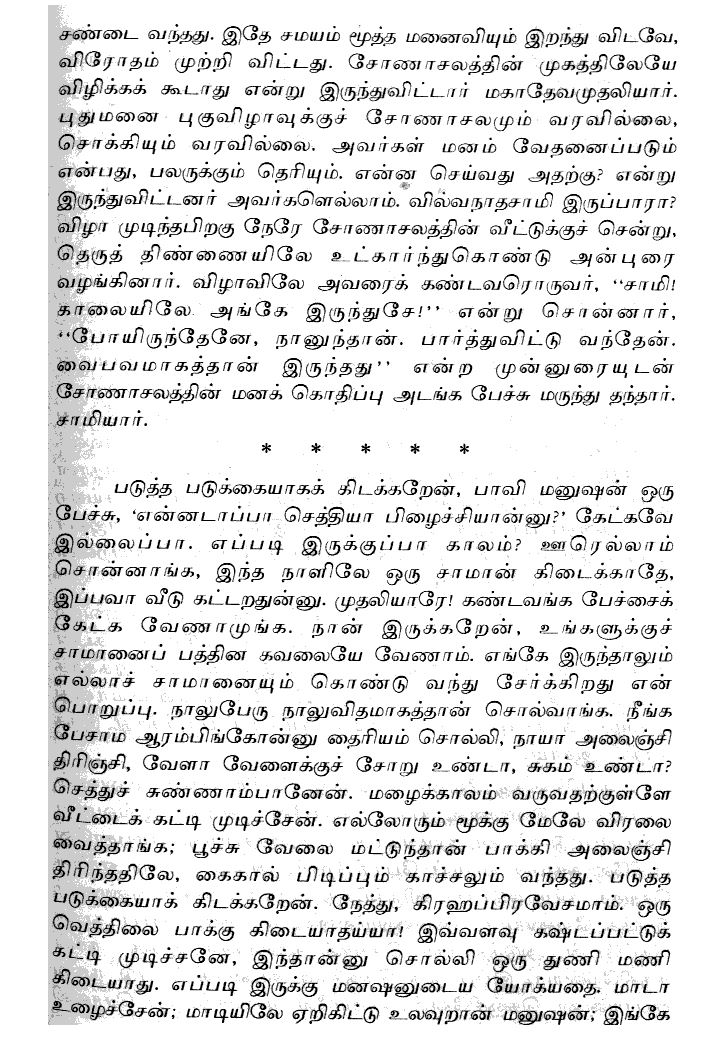 சண்டை வந்தது. இதே சமயம் மூத்த மனைவியும் இறந்து விடவே,
விரோதம் முற்றி விட்டது. சோணாசலத்தின் முகத்திலேயே
விழிக்கக் கூடாது என்று இருந்துவிட்டார் மகாதேவமுதலியார்.
புதுமனை புகுவிழாவுக்குச் சோணாசலமும் வரவில்லை,
சொக்கியும் வரவில்லை. அவர்கள் மனம் வேதனைப்படும்
என்பது, பலருக்கும் தெரியும். என்ன செய்வது அதற்கு? என்று
இருந்துவிட்டனர் அவர்களெல்லாம். வில்வநாதசாமி இருப்பாரா?
விழா முடிந்தபிறகு நேரே சோணாசலத்தின் வீட்டுக்குச் சென்று,
தெருத் திண்ணையிலே உட்கார்ந்துகொண்டு அன்புரை
வழங்கினார். விழாவிலே அவரைக் கண்டவரொருவர், ‘‘சாமி!
காலையிலே அங்கே இருந்துசே!’’ என்று சொன்னார்,
‘‘போயிருந்தேனே, நானுந்தான். பார்த்துவிட்டு வந்தேன்.
வைபவமாகத்தான் இருந்தது’’ என்ற முன்னுரையுடன்
சோணாசலத்தின் மனக் கொதிப்பு அடங்க பேச்சு மருந்து தந்தார்.
சாமியார்.
* * * * *
படுத்த படுக்கையாகக் கிடக்கறேன், பாவி மனுஷன் ஒரு
பேச்சு, ‘என்னடாப்பா செத்தியா பிழைச்சியான்னு?’ கேட்கவே
இல்லைப்பா. எப்படி இருக்குப்பா காலம்? ஊரெல்லாம்
சொன்னாங்க, இந்த நாளிலே ஒரு சாமான் கிடைக்காதே,
இப்பவா வீடு கட்டறதுன்னு. முதலியாரே! கண்டவங்க பேச்சைக்
கேட்க வேணாமுங்க. நான் இருக்கறேன், உங்களுக்குச்
சாமானைப் பத்தின கவலையே வேணாம். எங்கே இருந்தாலும்
எல்லாச் சாமானையும் கொண்டு வந்து சேர்க்கிறது என்
பொறுப்பு. நாலுபேரு நாலுவிதமாகத்தான் சொல்வாங்க. நீங்க
பேசாம ஆரம்பிங்கோன்னு தைரியம் சொல்லி, நாயா அலைஞ்சி
திரிஞ்சி, வேளா வேளைக்குச் சோறு உண்டா, சுகம் உண்டா?
செத்துச் சுண்ணாம்பானேன். மழைக்காலம் வருவதற்குள்ளே
வீட்டைக் கட்டி முடிச்சேன். எல்லோரும் மூக்கு மேலே விரலை
வைத்தாங்க; பூச்சு வேலை மட்டுந்தான் பாக்கி அலைஞ்சி
திரிந்ததிலே, கைகால் பிடிப்பும் காச்சலும் வந்தது. படுத்த
படுக்கையாக் கிடக்கறேன். நேத்து, கிரஹப்பிரவேசமாம். ஒரு
வெத்திலை பாக்கு கிடையாதய்யா! இவ்வளவு கஷ்டப்பட்டுக்
கட்டி முடிச்சனே, இந்தான்னு சொல்லி ஒரு துணி மணி
கிடையாது. எப்படி இருக்கு மனஷனுடைய யோக்யதை. மாடா
உழைச்சேன்; மாடியிலே ஏறிகிட்டு உலவுறான் மனுஷன்; இங்கே